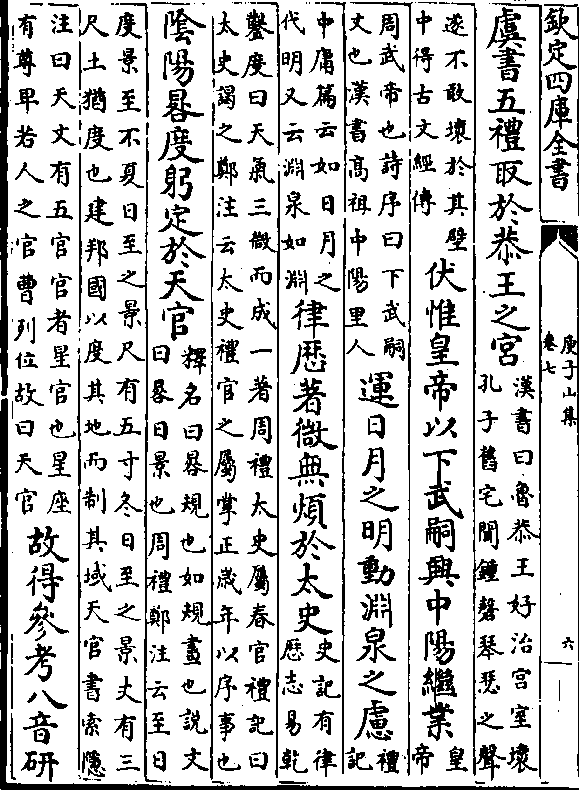 欽定四庫全書
庾子山集
卷七
六
虞書五禮取於恭王之宮
漢書曰魯恭王好治宮室壞
孔子舊宅聞鐘磬琴瑟之聲
遂不敢壞於其壁
中得古文經傳
伏惟皇帝以下武嗣興中陽繼業
皇
帝
周武帝也詩序曰下武嗣
文也漢書高祖中陽里人
運日月之明動淵泉之慮
禮
記
中庸篇云如日月之
代明又云淵泉如淵
律歴著微無煩於太史
史記有律
歴志易乾
鑿度曰天氣三微而成一著周禮太史屬春官禮記曰
太史謁之鄭注云太史禮官之屬掌正嵗年以序事也
隂陽晷度躬定於天官
釋名曰晷規也如規畫也說文
曰晷日景也周禮鄭注云至日
度景至不夏日至之景尺有五寸冬日至之景丈有三
尺土猶度也建邦國以度其地而制其域天官書索隱
注曰天文有五官官者星官也星座
有尊卑若人之官曹列位故曰天官
故得參考八音研